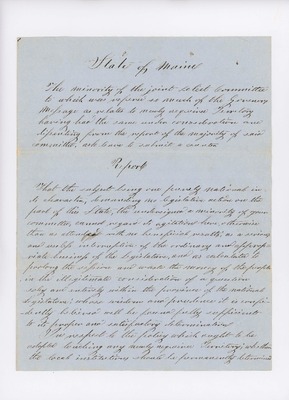 State of Maine
The minority of the joint select Committee
to which was referred so much of the Governors
Message as relates to newly acquired Territory
having had the same under consideration and
dissenting from the report of the majority of said
committee, ask leave to submit a
Report
That the subject being one purely national in
its character, demanding no legislative action on the
part of this State, the undersigned a minority of your
committee, cannot regard its agitation here, otherwise
than as attended with no beneficial results, as a serious
and useless interruption of the ordinary and appropriate
business of the legislature, and as calculated to
prolong the session and waste the money of the people
in the illegitimate consideration of a question
solely and entirely within the province of the national
legislature; whose wisdom and prudence it is confidently
believed will be found fully sufficient
to its proper and satisfactory determination.
In respect to the policy which ought to be
adopted touching any newly acquired Territory; whether
the local institutions should be permanently determined